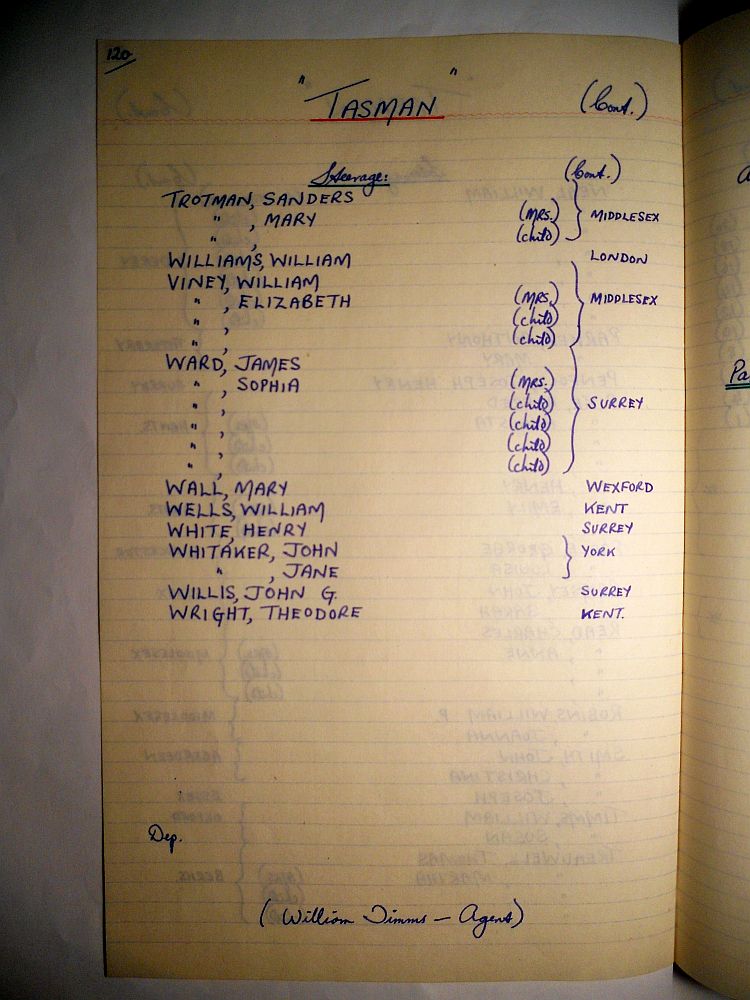 120
" TASMAN " (Cont.)
Steerage: (Cont.)
TROTMAN, SANDERS
" , MARY (MRS.) } MIDDLESEX
" , (child)
WILLIAMS, WILLIAM LONDON
VINEY, WILLIAM
" , ELIZABETH (MRS.) } MIDDLESEX
" , (child)
" , (child)
WARD, JAMES
" , SOPHIA (MRS.)
" , (child) } SURREY
" , (child)
" , (child)
" , (child)
WALL, MARY WEXFORD
WELLS, WILLIAM KENT
WHITE, HENRY SURREY
WHITAKER, JOHN } YORK
" , JANE
WILLIS, JOHN G. SURREY
WRIGHT, THEODORE KENT.
Dep.
(William Timms — Agent)